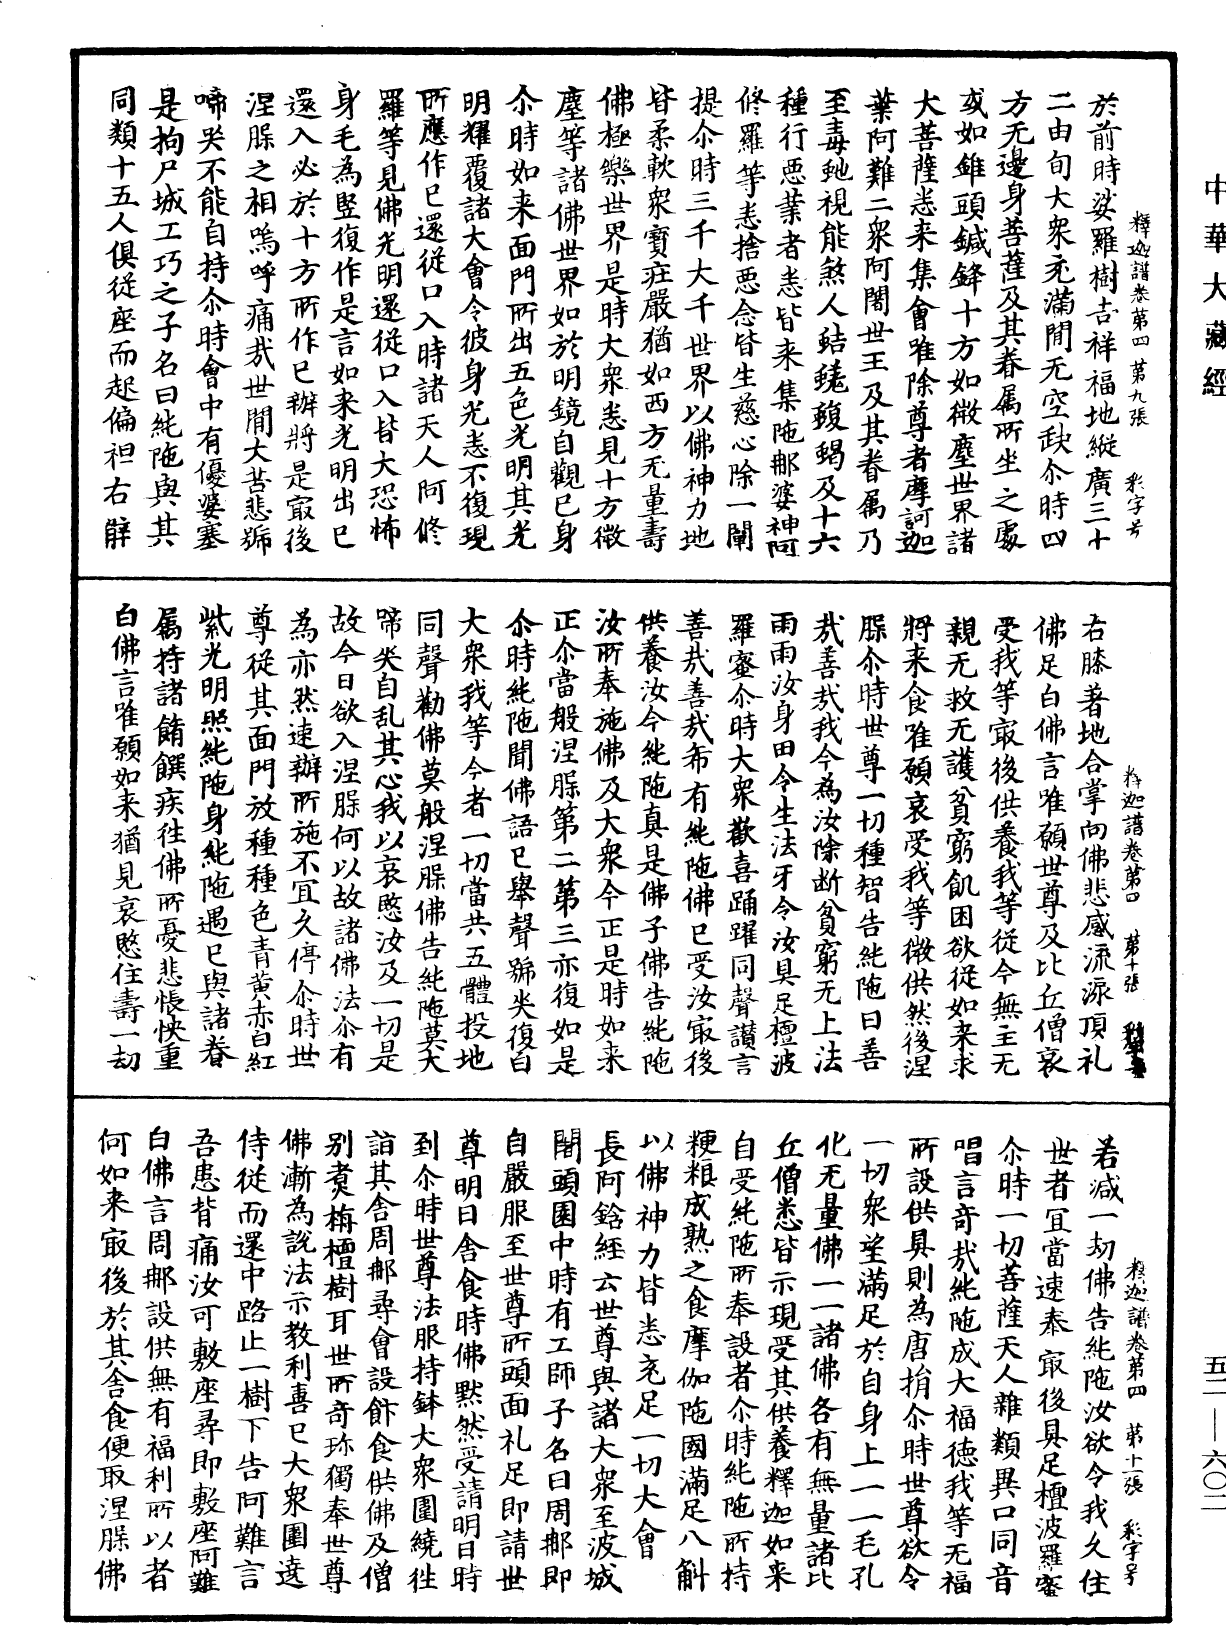 中華大藏經
釋迦譜卷第四 第九張 彩字号
於前時娑羅樹吉祥福地縱廣三十
二由旬大衆充滿閒无空缺尒時四
方无邊身菩薩及其眷属所坐之處
或如錐頭鍼鋒十方如微塵世界諸
大菩薩悉来集會唯除尊者摩訶迦
葉阿難二衆阿闍世王及其眷属乃
至毒虵視能煞人蛣蜣蝮蝎及十六
種行悪業者悉皆来集陁郍婆神阿
修羅等悉捨悪念皆生慈心除一闡
提尒時三千大千世界以佛神力地
皆柔軟衆寶疰嚴猶如西方无量壽
佛極樂世界是時大衆悉見十方微
塵等諸佛世界如於明鏡自觀已身
尒時如来面門所出五色光明其光
明耀覆諸大會令彼身光悉不復現
所應作已還従口入時諸天人阿修
羅等見佛光明還従口入皆大恐怖
身毛為竪復作是言如来光明出已
還入必於十方所作已辦將是冣後
涅槃之相嗚呼痛㢤世閒大苦悲號
啼哭不能自持尒時會中有優婆塞
是拘尸城工巧之子名曰純陁與其
同類十五人俱従座而起偏袒右髀
釋迦譜卷第四 第十張
右膝著地合掌向佛悲感流淚頂礼
佛足白佛言唯願世尊及比丘僧哀
受我等冣後供養我等従今無主无
親无救无護貧窮飢困欲従如来求
將来食唯願哀受我等微供然後涅
槃尒時世尊一切種智告純陁曰善
㢤善㢤我今為汝除断貧窮无上法
雨雨汝身田令生法牙令汝具足檀波
羅蜜尒時大衆歡喜踊躍同聲讃言
善㢤善㢤希有純陁佛已受汝冣後
供養汝今純陁真是佛子佛告純陁
汝所奉施佛及大衆今正是時如来
正尒當般涅槃第二第三亦復如是
尒時純陁聞佛語已舉聲號哭復白
大衆我等今者一切當共五體投地
同聲勸佛莫般涅槃佛告純陁莫大
啼哭自乱其心我以哀愍汝及一切是
故今日欲入涅槃何以故諸佛法尒有
為亦然速辦所施不冝久停尒時世
尊従其面門放種種色青黄赤白紅
紫光明照純陁身純陁遇已與諸眷
属持諸餚饌疾徃佛所憂悲悵怏重
白佛言唯願如来猶見哀愍住壽一劫
釋迦譜卷第四 第十一張 彩字号
若減一劫佛告純陁汝欲令我久住
世者冝當速奉冣後具足檀波羅蜜
尒時一切菩薩天人雜類異口同音
唱言奇㢤純陁成大福德我等无福
所設供具則為唐捐尒時世尊欲令
一切衆望滿足於自身上一一毛孔
化无量佛一一諸佛各有無量諸比
丘僧悉皆示現受其供養釋迦如来
自受純陁所奉設者尒時純陁所持
粳粮成熟之食摩伽陁國滿足八斛
以佛神力皆悉充足一切大會
長阿鋡經云世尊與諸大衆至波城
闍頭園中時有工師子名曰周郍即
自嚴服至世尊所頭面礼足即請世
尊明日舎食時佛黙然受請明日時
到尒時世尊法服持鉢大衆圍繞徃
詣其舎周郍尋會設飰食供佛及僧
別煑栴檀樹耳世所奇珎獨奉世尊
佛漸為説法示教利喜已大衆圍遶
侍従而還中路止一樹下告阿難言
吾患背痛汝可敷座尋即敷座阿難
白佛言周郍設供無有福利所以者
何如来冣後於其舎食便取涅槃佛
五二—六〇二